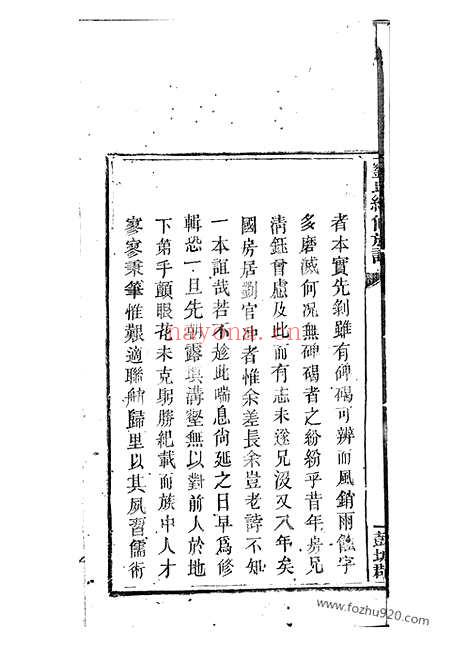 劉氏續修族譜
彭城郡
者本實先剝雖有碑碣可辨而風銷雨蝕字
多磨滅何况無碑碣者之紛紛乎昔年房兄
淸鈺曾慮及此而有志未逮兄沒又八年矣
國房居劉官冲者惟余差長余豈老誖不知
一本誼哉若不趁此喘息尙延之日早爲修
輯恐一旦先朝露塡溝壑無以對前人於地
下第手顫眼花未克躬勝紀載而族中人才
寥寥秉筆惟艱適聯舳歸里以其夙習儒術
nayona.cn
www.fozhu920.com